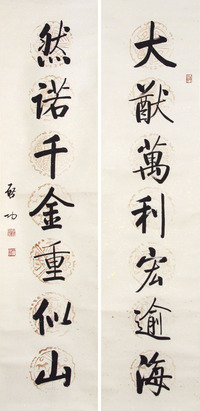 大猷萬利宏逾海
然諾千金重似山
啓功